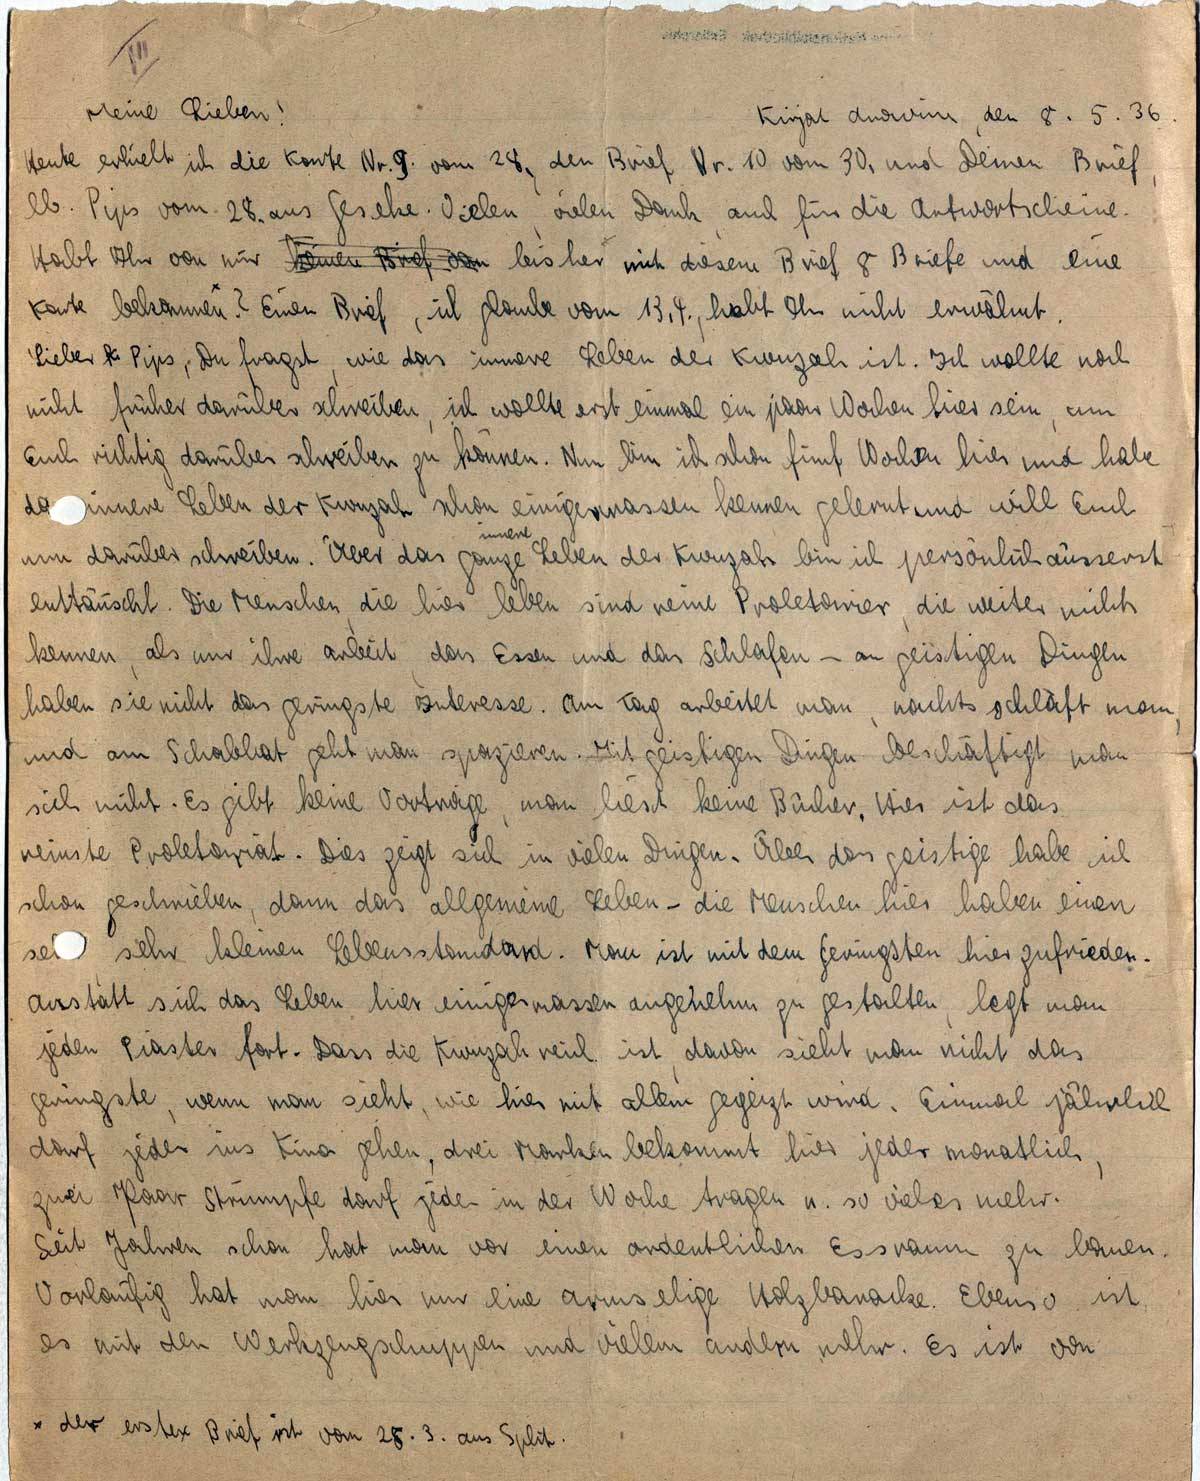 III
Meine Lieben! Kirjat Anavim, den 8. 5. 36.
Heute erhielt ich die Karte Nr. 9. vom 28., den Brief Nr. 10 vom 30. und Deinen Brief,
lb. Pips vom 28. aus Geseke. Vielen, vielen Dank auch für die Antwortscheine.
Habt Ihr von mir keinen Brief von bisher mit diesem Brief 8 Briefe und eine
Karte bekommen*? Einen Brief, ich glaube vom 13.4., habt Ihr nicht erwähnt.
Lieber Pips, Du fragst, wie das innere Leben der Kwuzah ist. Ich wollte noch
nicht früher darüber schreiben, ich wollte erst einmal ein paar Wochen hier sein, um
Euch richtig darüber schreiben zu können. Nun bin ich schon fünf Wochen hier und habe
da innere Leben der Kwuzah schon einigermassen kennen gelernt und will Euch
innere
nun darüber schreiben. Über das ganze Leben der Kwuzah bin ich persönlich äusserst
enttäuscht. Die Menschen, die hier leben sind reine Proletarier, die weiter nichts
kennen, als nur ihre Arbeit, das Essen und das Schlafen – an geistigen Dingen
haben sie nicht das geringste Interesse. Am Tag arbeitet man, nachts schläft man,
und am Schabbat geht man spazieren. Mit geistigen Dingen beschäftigt man
sich nicht. Es gibt keine Vorträge, man liest keine Bücher. Hier ist das
reinste Proletariat. Dies zeigt sich in vielen Dingen. Über das geistige habe ich
schon geschrieben, dann das allgemeine Leben – die Menschen hier haben einen
seh sehr kleinen Lebensstandard. Man ist mit dem Geringsten hier zufrieden.
Anstatt sich das Leben hier einigermassen angenehm zu gestalten, legt man
jeden Piaster fort. Dass die Kwuzah reich ist, davon sieht man nicht das
geringste, wenn man sieht, wie hier mit allem gegeizt wird. Einmal jährlich
darf jeder ins Kino gehen, drei Marken bekommt hier jeder monatlich,
zwei Paar Strümpfe darf jeder in der Woche tragen u. so vieles mehr.
Seit Jahren schon hat man vor einen ordentlichen Essraum zu bauen.
Vorläufig hat man hier nur eine armselige Holzbaracke. Ebenso ist
es mit den Werkzeugschuppen und vielem andern mehr. Es ist von
* der erste Brief ist vom 28. 3. aus Split.